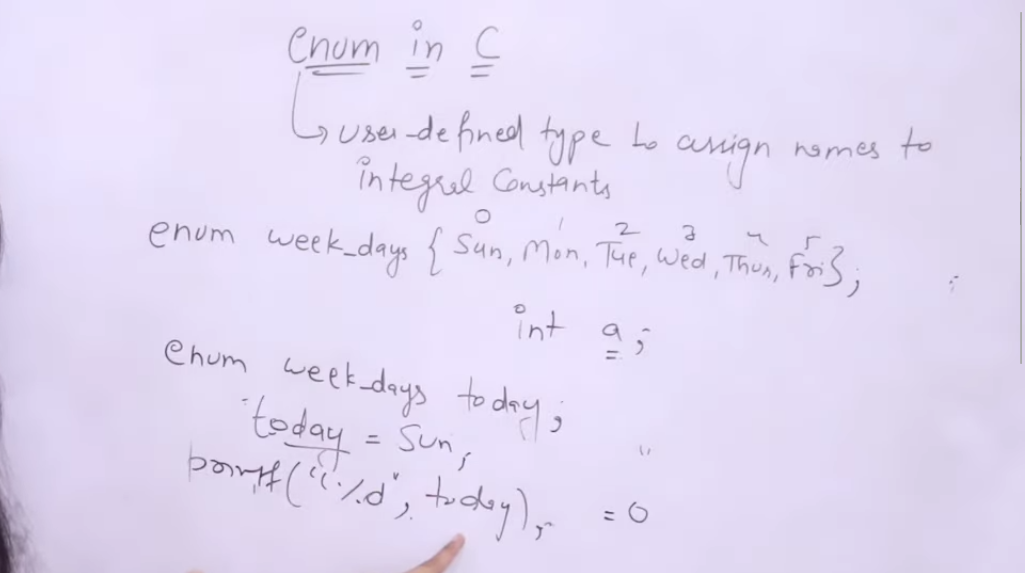 enum in C
user-defined type to assign names to
integral Constants
0 1 2 3 4 5
enum week_days { Sun, Mon, Tue, Wed, Thus, Fri};
int a;
enum week_days today;
today = Sun;
printf("%d", today); = 0